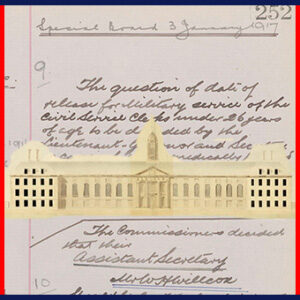 252
Special Board 3 January 1917
9
The question of date of
release for military service of the
Civil Service Clerks under 26 years
of age to be decided by the
Lieutenant-Governor and
medically
The Commissioners decided
that their
Assistant Secretary
Mr W H Willcox
10